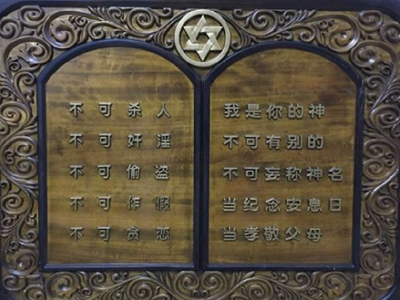 我是你的神
不可有别的
不可妄称神名
当纪念安息日
当孝敬父母
不可杀人
不可奸淫
不可偷盗
不可作假
不可贪恋